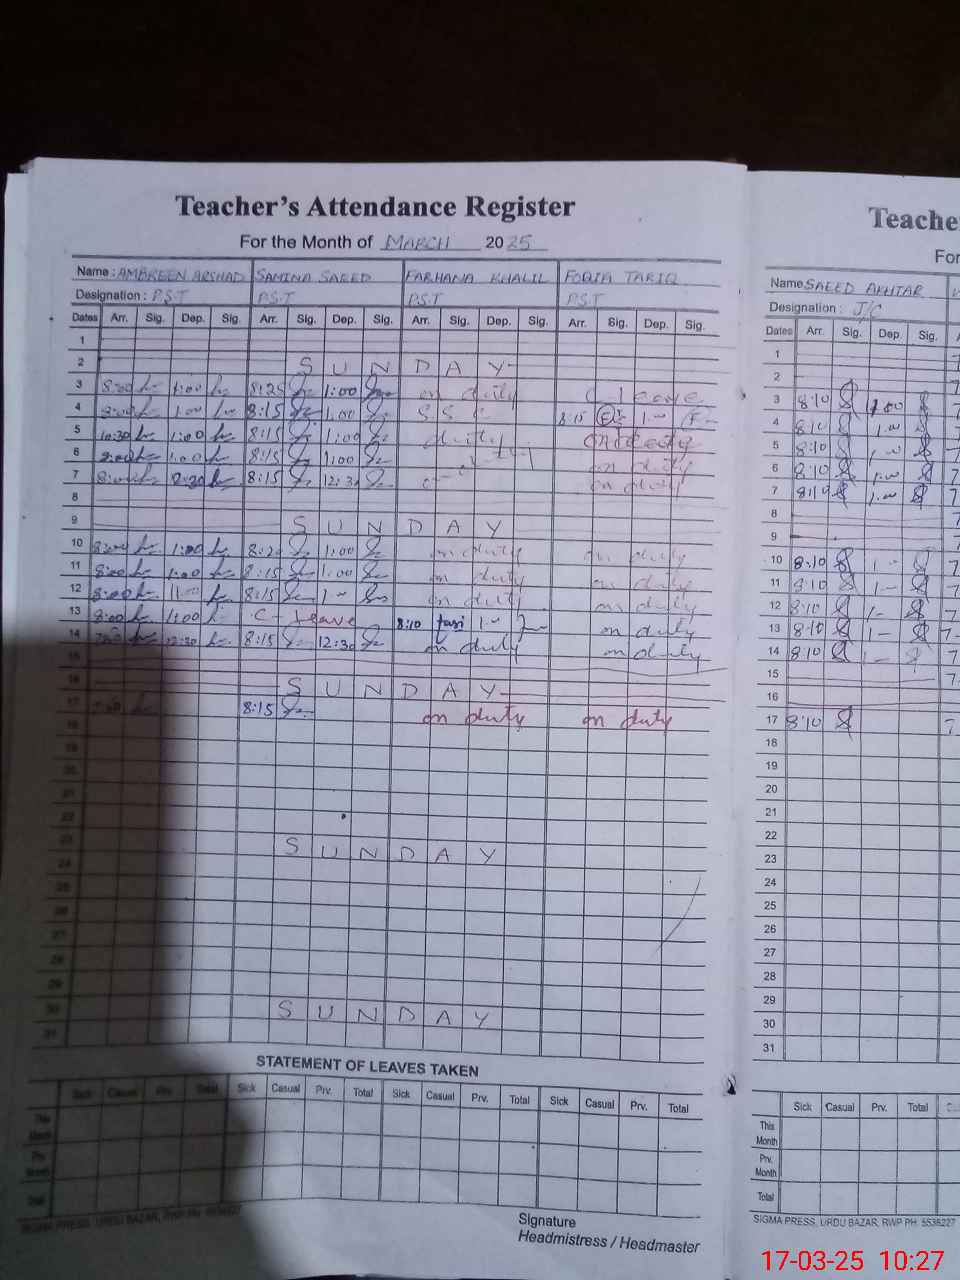 Teacher's Attendance Register
For the Month of MARCH 2025
Name: AMBREEN ARSHAD SAMINA SAEED FARHANA KHALIL FOZIA TARIQ
Designation: P.S.T P.S.T P.S.T P.S.T
Dates Arr. Sig. Dep. Sig. Arr. Sig. Dep. Sig. Arr. Sig. Dep. Sig. Arr. Sig. Dep. Sig.
1
2 SUNDAY
3 8:00 1:00 1:00 on duty C leave
4 8:15 1.00 S.S.C 8:15 1-
5 10:30 1:00 8:15 1:00 duty on duty
6 8:00 1:00 8:15 1:00 on duty
7 8:15 on duty
8
9 SUNDAY
10 8:00 1:00 1:00 on duty on duty
11 8:00 1:00 8:15 1:00 on duty on duty
12 8:00 8:15 1- on duty on duty
13 8:00 1:00 C-Leave 8:10 1- on duty
14 12:30 8:15 12:30 on duty on duty
15
16 SUNDAY
17 8:15 on duty on duty
18
19
20
21
22
23 SUNDAY
24
25
26
27
28
29
30 SUNDAY
31
STATEMENT OF LEAVES TAKEN
Sick Casual Prv. Total Sick Casual Prv. Total Sick Casual Prv. Total Sick Casual Prv. Total
This Month
Prv. Month
Total
SIGMA PRESS, URDU BAZAR, RWP PH:
Signature
Headmistress / Headmaster
Teache
For
Name SAEED AKHTAR
Designation: J/C
Dates Arr. Sig. Dep. Sig.
1
2
3 8:10 1.00
4 8:10 1.00
5 8:10 1.00
6 8:10 1.00
7 8:10 1.00
8
9
10 8:10 1-
11 8:10 1-
12 8:10 1-
13 8:10 1-
14 8:10 1-
15
16
17 8:10
18
19
20
21
22
23
24
25
26
27
28
29
30
31
Sick Casual Prv. Total
This Month
Prv. Month
Total
SIGMA PRESS, URDU BAZAR, RWP PH: 5536227
17-03-25 10:27